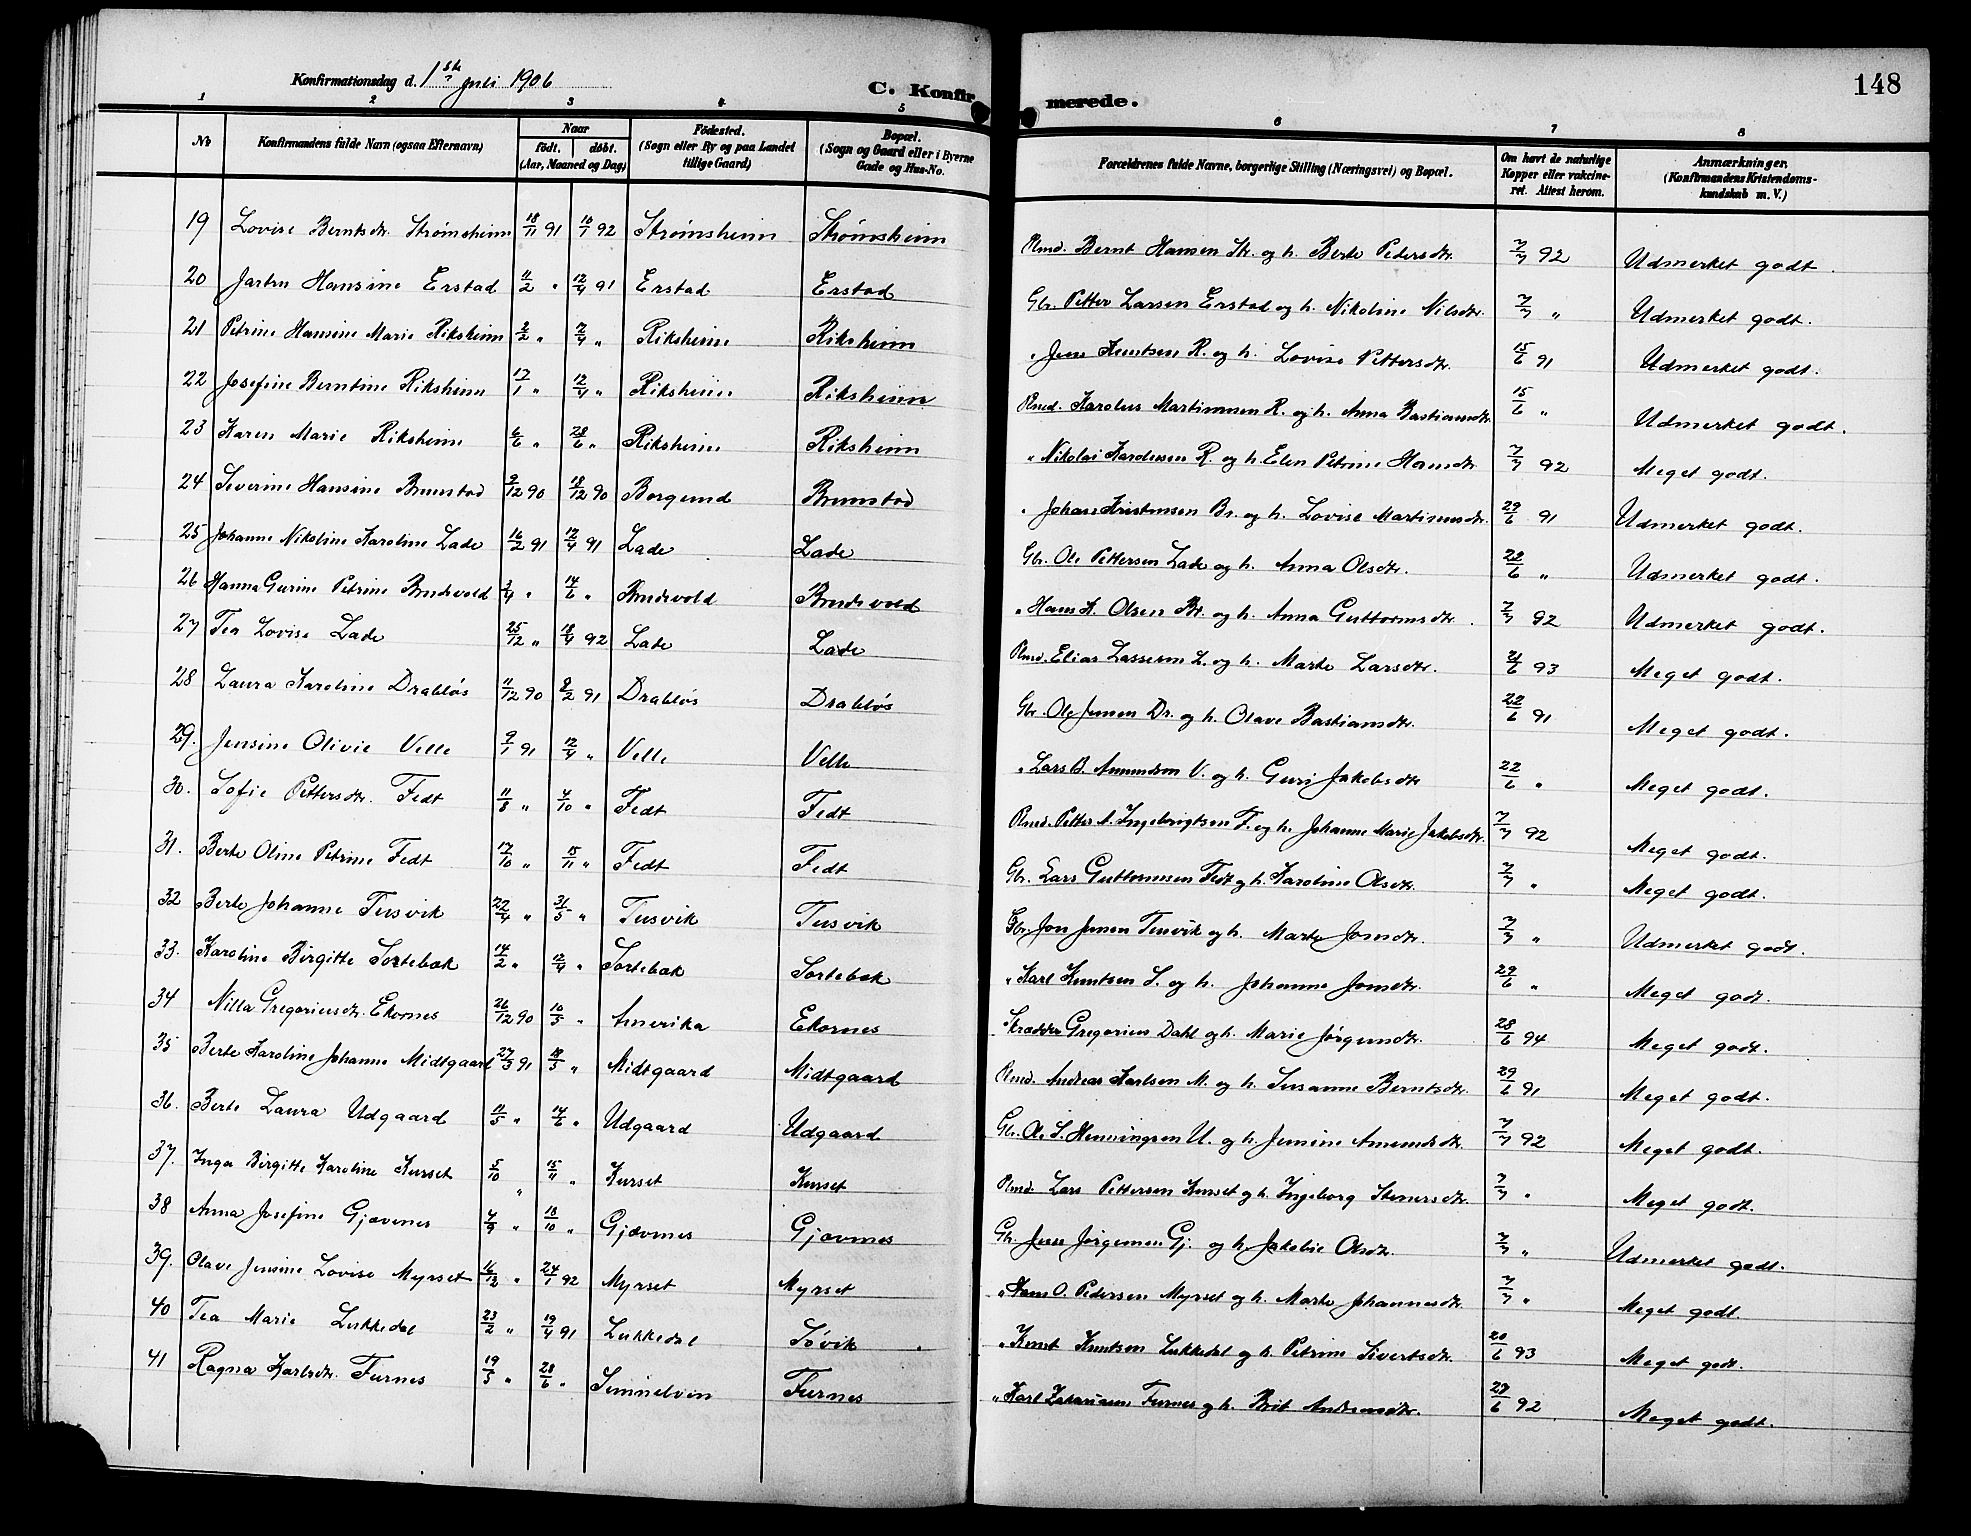 Konfirmationsdag d. 1ste Juli 1906
C. Konfirmerede.
148
1 2 3 4 5 6 7 8
No
Konfirmandens fulde Navn (ogsaa Efternavn)
Naar
født. døbt.
(Aar, Maaned og Dag)
Fødested.
(Sogn eller By og paa Landet
tillige Gaard)
Bopæl.
(Sogn og Gaard eller i Byerne
Gade og Hus-No.
Forældrenes fulde Navne, borgerlige Stilling (Næringsvei) og Bopæl.
Om havt de naturlige
Kopper eller vakcine-
ret. Attest herom.
Anmærkninger.
(Konfirmandens Kristendoms-
kundskab m. V.)
19 Lovise Berntsdtr. Strømsheim 18/11 91 10/1 92 Strømsheim Strømsheim Rmd. Bernt Hansen Str. og h. Berte Pedersdtr. 7/7 92 Udmerket godt.
20 Hansine Erstad 11/2 " 12/4 91 Erstad Erstad Gbr. Petter Larsen Erstad og h. Nikoline Nilsdtr. 7/7 " Udmerket godt.
21 Petrine Hansine Marie Riksheim 2/2 " 2/4 " Riksheim Riksheim " Jens Knutsen R. og h. Lovise Pettersdtr. 15/6 91 Udmerket godt.
22 Josefine Berntine Riksheim 17/1 " 12/4 " Riksheim Riksheim Rmd. Karolus Martinusen R. og h. Anna Bastiansdtr. 15/6 " Udmerket godt.
23 Karen Marie Riksheim 6/6 " 28/6 " Riksheim Riksheim " Nikolai Karolusen R. og h. Elen Petrine Hansdtr. 7/7 92 Meget godt.
24 Severine Hansine Brunstad 9/12 90 18/12 90 Borgund Brunstad " Johan Kristensen Br. og h. Lovise Martinusdtr. 29/6 91 Udmerket godt.
25 Johanne Nikoline Karoline Lade 16/2 91 12/4 91 Lade Lade Gbr. Ole Pettersen Lade og h. Anna Olsdtr. 22/6 " Udmerket godt.
26 Hanna Gurine Petrine Brudevold 3/4 " 14/6 " Brudevold Brudevold " Hans K. Olsen Br. og h. Anna Guttormsdtr. 7/7 92 Udmerket godt.
27 Tea Lovise Lade 25/12 " 18/4 92 Lade Lade Rmd. Elias Lassesen L. og h. Marte Larsdtr. 21/6 93 Meget godt.
28 Laura Karoline Drabløs 11/12 90 8/2 91 Drabløs Drabløs Gbr. Ole Jensen Dr. og h. Olave Bastiansdtr. 22/6 91 Meget godt.
29. Jensine Olivie Velle 9/1 91 12/4 " Velle Velle " Lars B. Amundsen V. og h. Guri Jakobsdtr. 22/6 " Meget godt.
30. Sofie Pettersdtr. Fedt 11/8 " 4/10 " Fedt Fedt Rmd. Petter A. Ingebrigtsen F. og h. Johanne Marie Jakobsdtr. 7/7 92 Meget godt.
31. Berte Oline Petrine Fedt 17/10 " 15/11 " Fedt Fedt Gbr. Lars Guttormsen Fedt og h. Karoline Olsdtr. 7/7 " Meget godt.
32 Berte Johanne Tusvik 22/4 " 31/5 " Tusvik Tusvik Gbr. Jon Jensen Tusvik og h. Marte Jonsdtr. 7/7 " Udmerket godt.
33. Karoline Birgitte Sortebæk 14/2 " 12/4 " Sortebæk Sortebæk " Karl Knutsen S. og h. Johanne Jonsdtr. 29/6 " Meget godt.
34 Nilla Gregoriusdtr. Ekornes 26/12 90 10/5 " Amerika Ekornes Skrædder Gregorius Dahl og h. Marie Jørgensdtr. 28/6 94 Meget godt.
35 Berte Karoline Johanne Midtgaard 27/3 91 /5 " Midtgaard Midtgaard Rmd. Andreas Karlsen M. og h. Susanne Berntsdtr. 29/6 91 Meget godt.
36. Berte Laura Udgaard 11/5 " 14/6 " Udgaard Udgaard Gbr. O. S. Henningsen U. og h. Jensine Amundsdtr. 7/7 92 Meget godt.
37. Inga Birgitte Karoline Kurset 5/10 " 15/11 " Kurset Kurset Rmd. Lars Pettersen Kurset og h. Ingeborg Steinersdtr. 7/7 " Meget godt.
38 Anna Josefine Gjævenes 4/9 " 18/10 " Gjævenes Gjævenes Gbr. Jens Jørgensen Gj. og h. Jakobie Olsdtr. 7/7 " Udmerket godt.
39. Olave Jensine Lovise Myrset 16/12 " 24/1 92 Myrset Myrset " Hans O. Pedersen Myrset og h. Marte Johannesdtr. 7/7 " Meget godt.
40 Tea Marie Lukkedal 23/2 " 19/4 91 Lukkedal Søvik " Knut Knutsen Lukkedal og h. Petrine Sivertsdtr. 20/6 93 Meget godt.
41 Ragna Karlsdtr. Furnes 19/5 " 28/6 " Sunnelven Furnes " Karl Zakariasen Furnes og h. Brit Andreasdtr. 28/6 92 Meget godt.